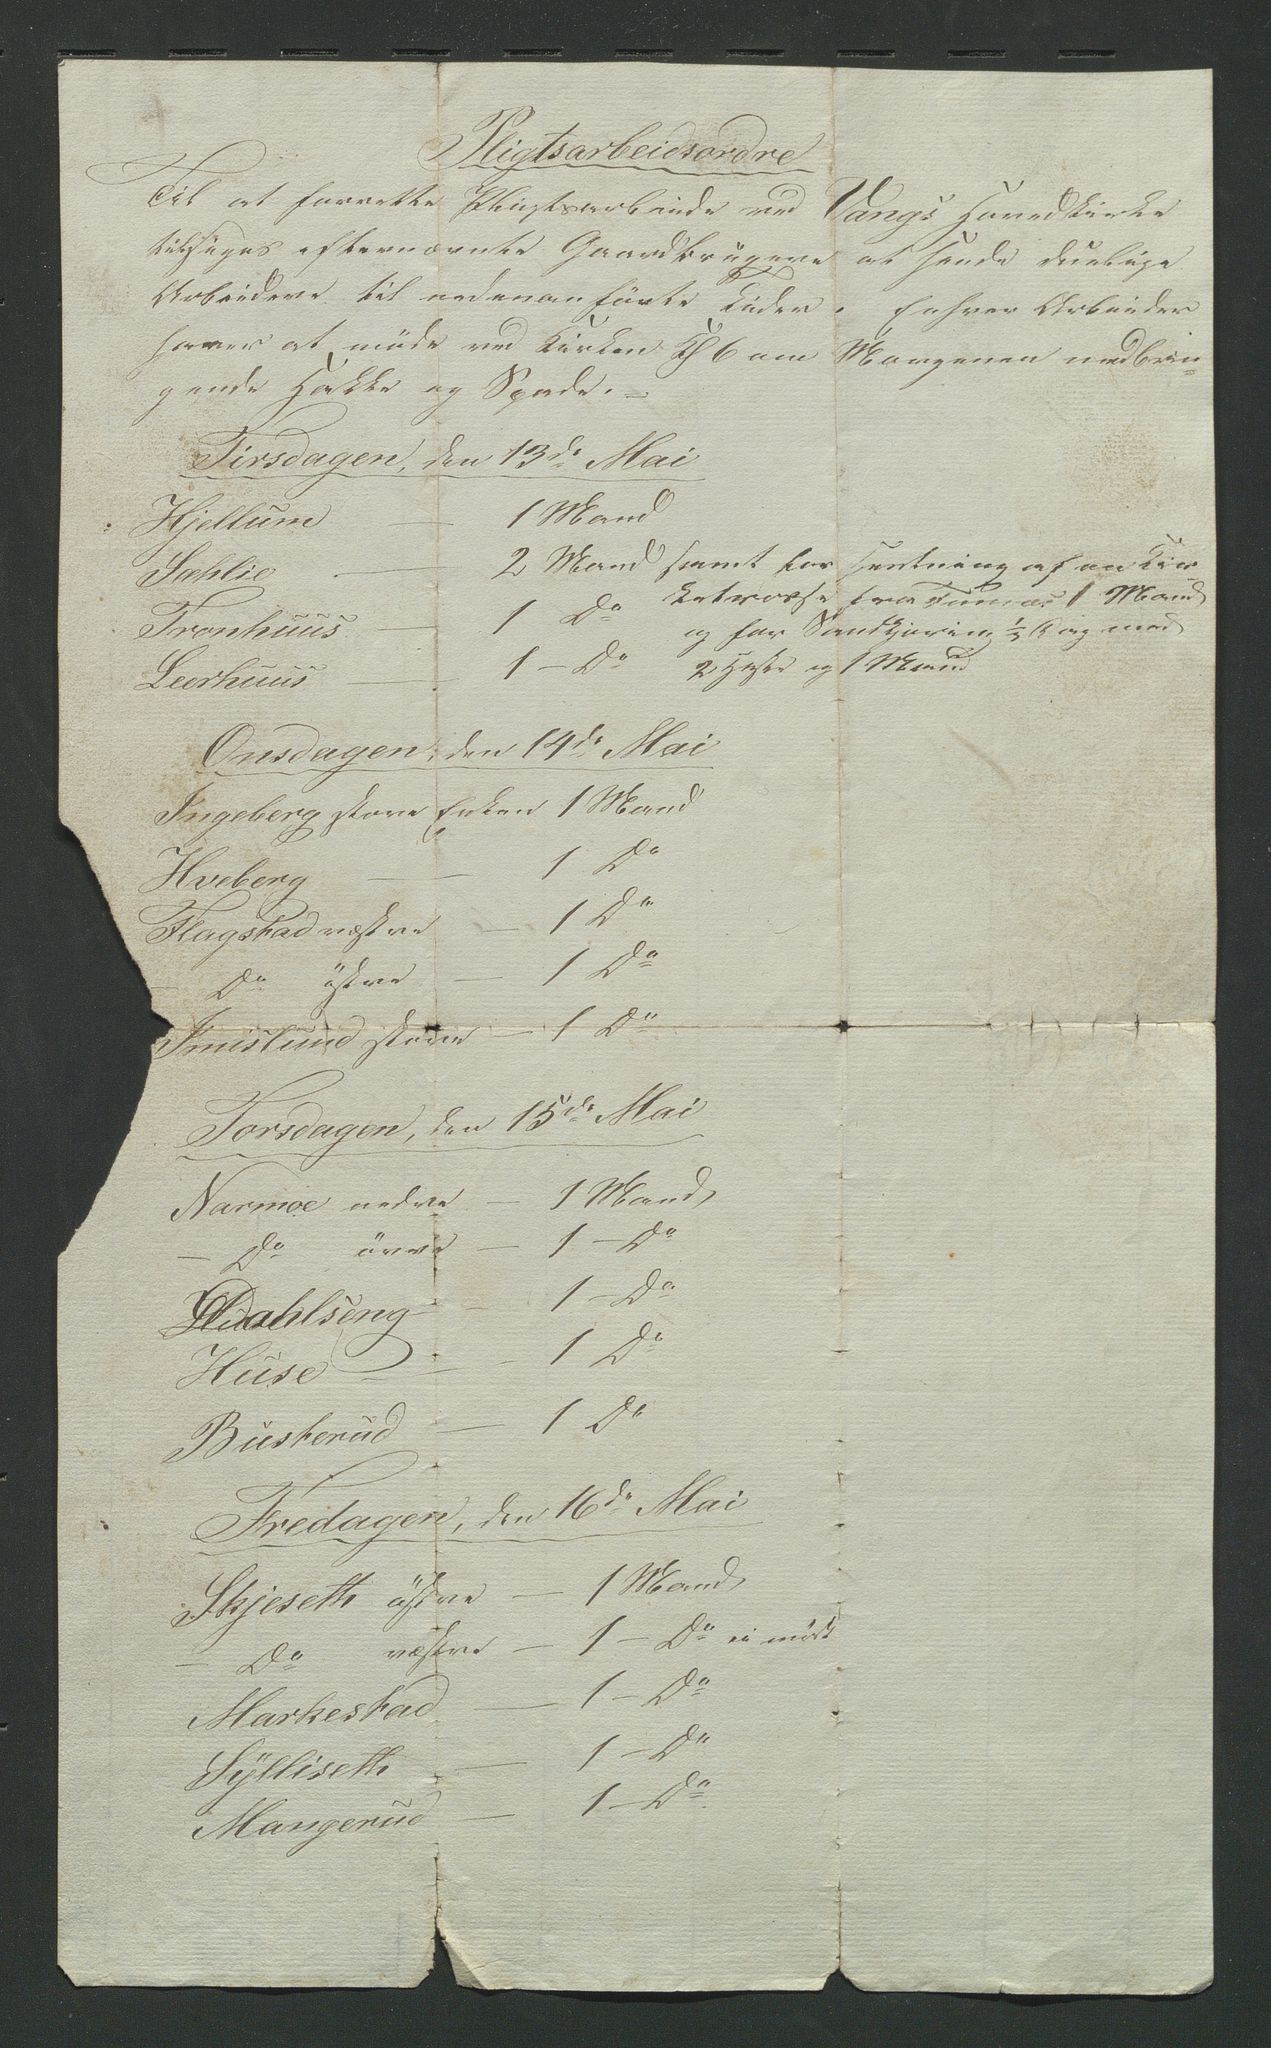 Pligtsarbeidsordre
Til at forrette Pligtsarbeide ved Vangs Hovedkirke
tilsiges efternævnte Gaardbrugere at sende duelige
Arbeidere til nedenanførte Tider. Enhver Arbeider
haver at møde ved Kirken Kl 6 om Morgenen medbrin-
gende Hakke og Spade. –
Tirsdagen, den 13de Mai
Hjellum — 1 Mand
Sahlie — 2 Mand samt for Hentning af en Kir
Tronhuus — 1 Do
fra 1 Mand
og for Sandkjøring ½ Dag med
Leerhuus — 1 – Do 2 Heste og 1 Mand
Onsdagen, den 14de Mai
Ingeberg store Enken 1 Mand
Hveberg — — 1 Do
Flagstad vestre — 1 Do
– Do östre — 1 Do
Imislund store – 1 Do
Torsdagen, den 15de Mai
Narmoe nedre – 1 Mand
– Do övre – 1 – Do
Dahlseng – 1 – Do
Huse — — 1 Do
Busterud — 1 Do
Fredagen, den 16de Mai
Skjeseth östre – 1 Mand
– Do vestre – 1 – Do ei mödt
Markestad — 1 – Do
Sÿlliseth — 1 – Do
Mangerud — 1 – Do